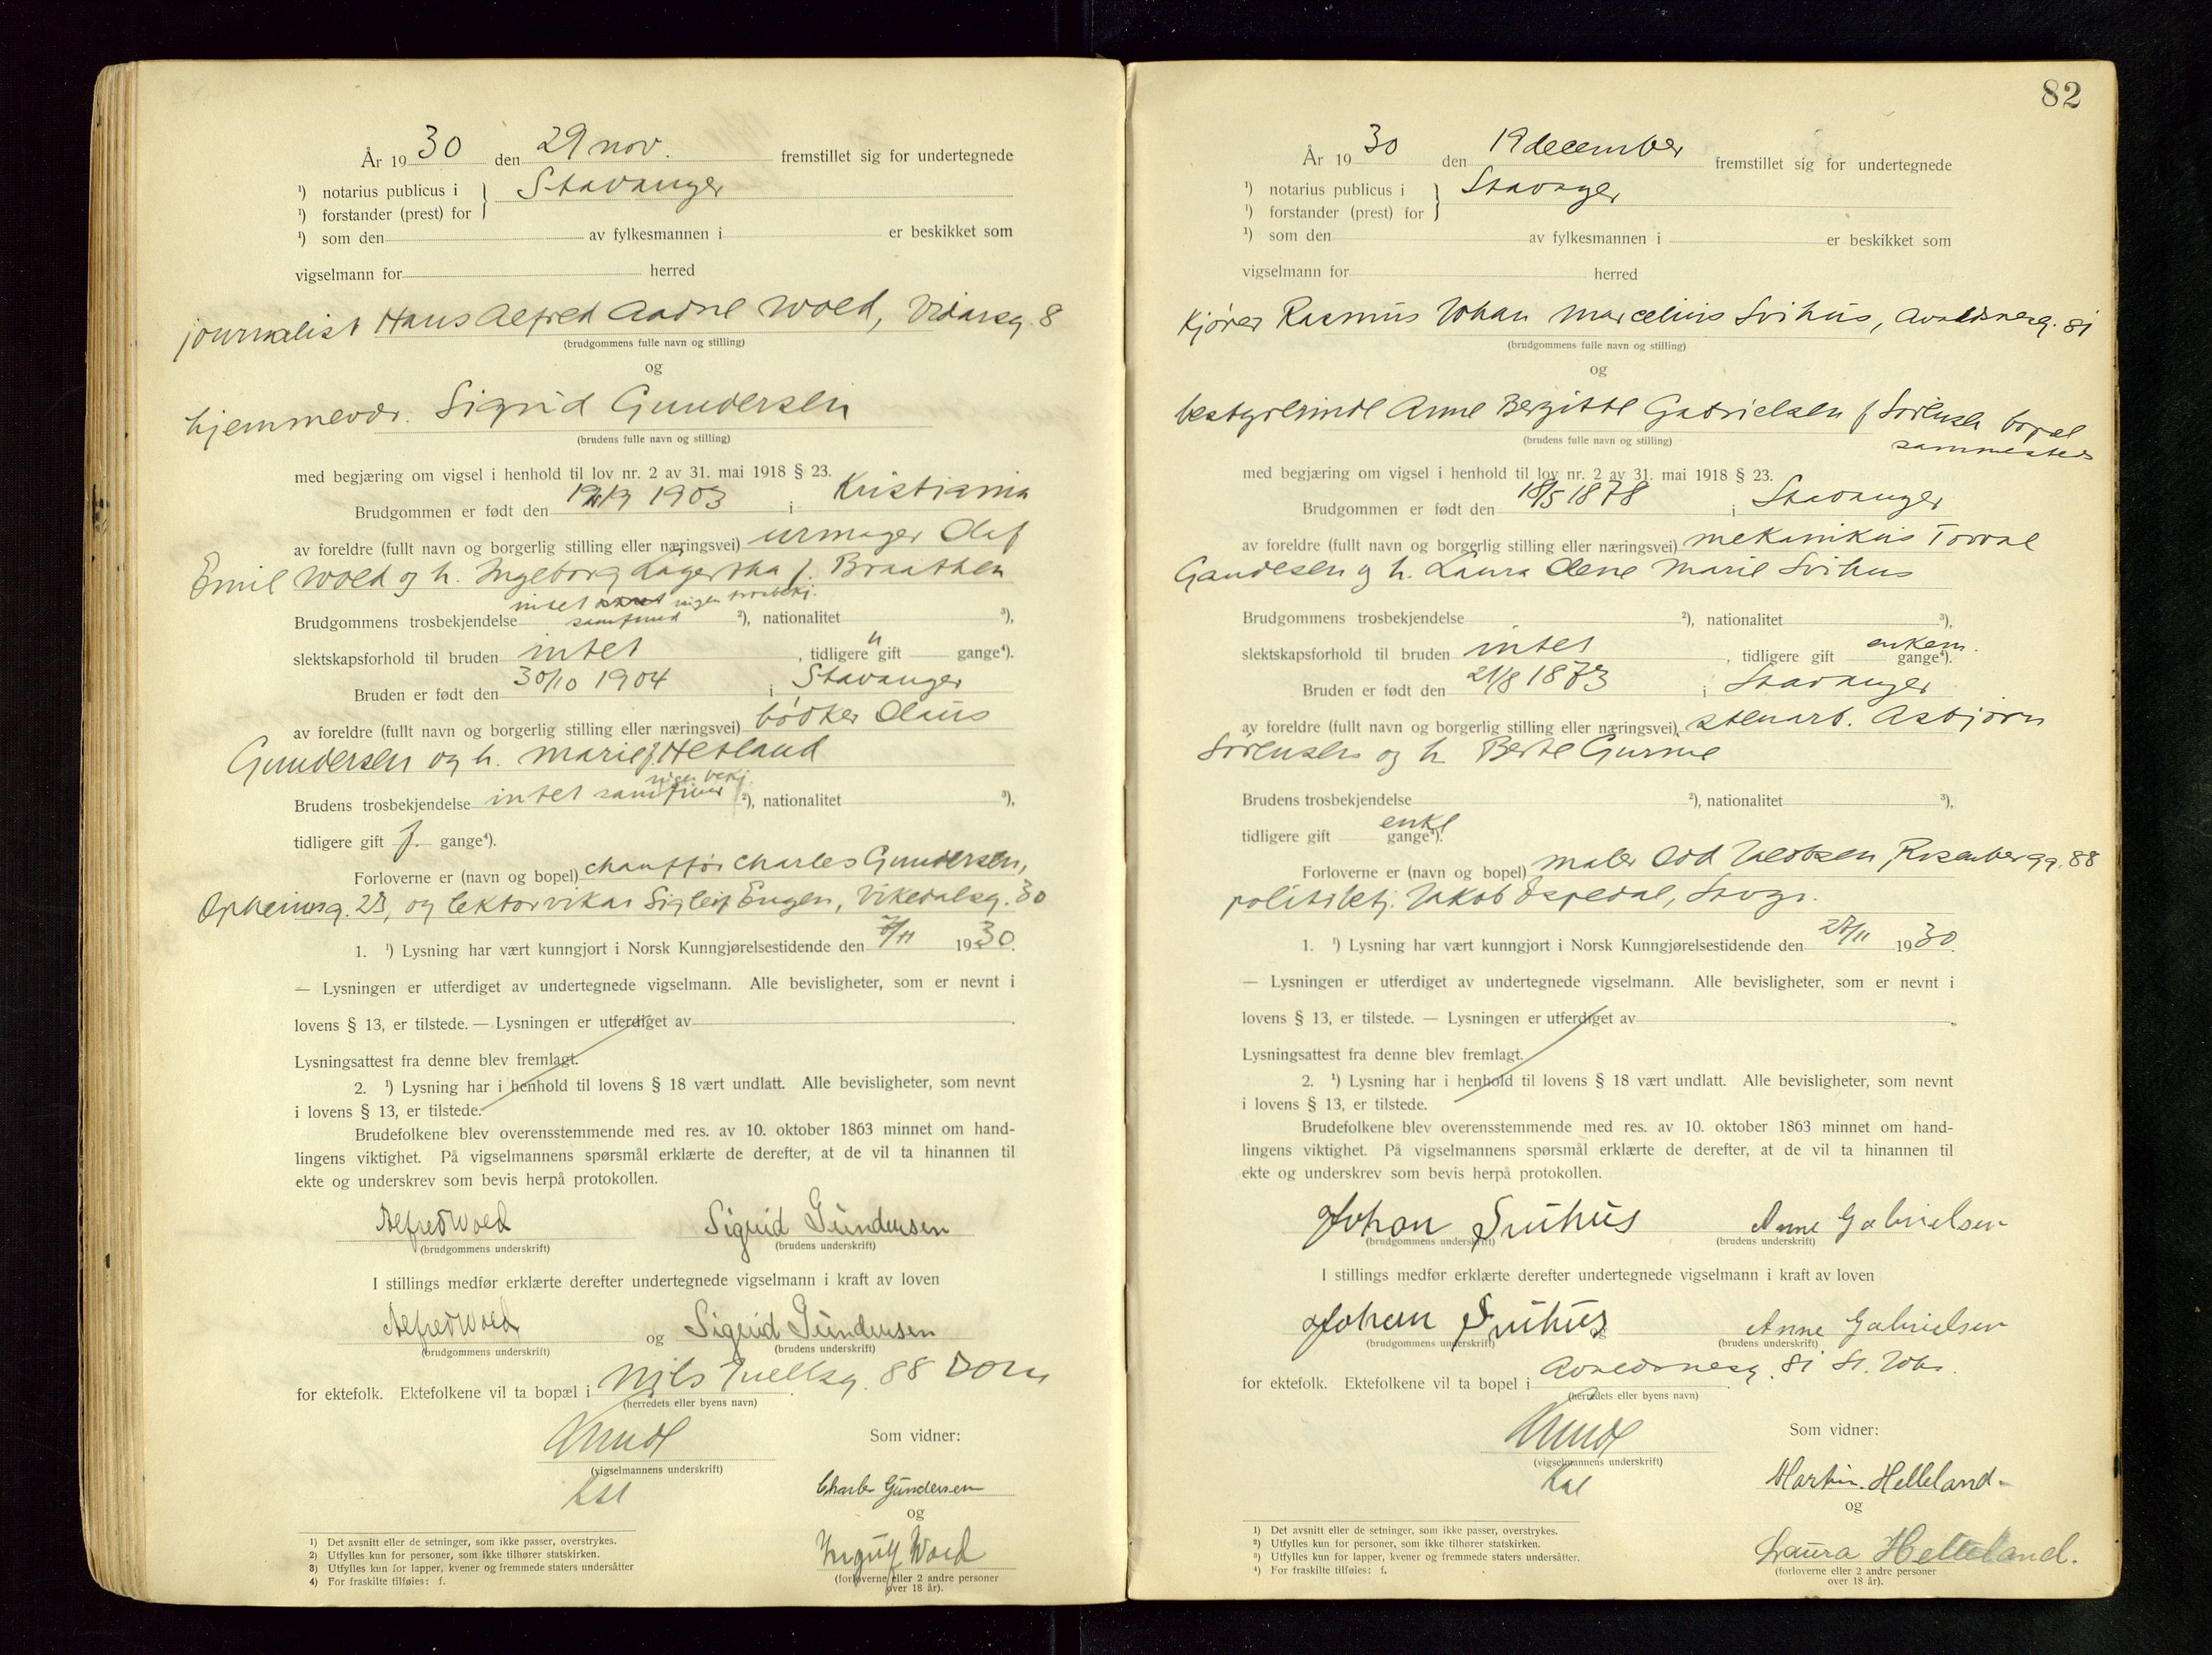 År 1930 den 29 nov. fremstillet sig for undertegnede
¹) notarius publicus i } Stavanger
¹) forstander (prest) for
¹) som den av fylkesmannen i er beskikket som
vigselmann for herred
journalist Hans Alfred Aadne Wold, Vidarsg. 8
(brudgommens fulle navn og stilling)
og
hjemmevær. Sigrid Gundersen
(brudens fulle navn og stilling)
med begjæring om vigsel i henhold til lov nr. 2 av 31. mai 1918 § 23.
Brudgommen er født den 1903 i Kristiania
av foreldre (fullt navn og borgerlig stilling eller næringsvei) urmager Olaf
Emil Wold og h. Ingeborg Lagertha f. Braathen
intet ingen trosbekj.
Brudgommens trosbekjendelse samfund ²), nationalitet ³),
slektskapsforhold til bruden intet, tidligere gift gange⁴).
Bruden er født den 30/10 1904 i Stavanger
av foreldre (fullt navn og borgerlig stilling eller næringsvei) bødker Olaus
Gundersen og h. Marie f Hetland
ingen bekj.
Brudens trosbekjendelse intet samfund ²), nationalitet ³),
tidligere gift gange⁴).
Forloverne er (navn og bopel) chauffør Charles Gundersen,
Opheimsg. 23, og lektorvikar Sigleif Engen, Vikedalsg. 30
1. ¹) Lysning har vært kunngjort i Norsk Kunngjørelsestidende den /11 1930.
— Lysningen er utferdiget av undertegnede vigselmann. Alle bevisligheter, som er nevnt i
lovens § 13, er tilstede. — Lysningen er utferdiget av .
Lysningsattest fra denne blev fremlagt.
2. ¹) Lysning har i henhold til lovens § 18 vært undlatt. Alle bevisligheter, som nevnt
i lovens § 13, er tilstede.
Brudefolkene blev overensstemmende med res. av 10. oktober 1863 minnet om hand-
lingens viktighet. På vigselmannens spørsmål erklærte de derefter, at de vil ta hinannen til
ekte og underskrev som bevis herpå protokollen.
Alfred Wold Sigrid Gundersen
(brudgommens underskrift) (brudens underskrift)
I stillings medfør erklærte derefter undertegnede vigselmann i kraft av loven
Alfred Wold og Sigrid Gundersen
(brudgommens underskrift) (brudens underskrift)
for ektefolk. Ektefolkene vil ta bopæl i Nils Juellsg. 88 Dom
(herredets eller byens navn)
Som vidner:
(vigselmannens underskrift)
Charles Gundersen
og
Ingulf Wold
(forloverne eller 2 andre personer
over 18 år).
1) Det avsnitt eller de setninger, som ikke passer, overstrykes.
2) Utfylles kun for personer, som ikke tilhører statskirken.
3) Utfylles kun for lapper, kvener og fremmede staters undersåtter
4) For fraskilte tilføies: f.
82
År 1930 den 19 december fremstillet sig for undertegnede
¹) notarius publicus i } Stavager
¹) forstander (prest) for
¹) som den av fylkesmannen i er beskikket som
vigselmann for herred
Kjører Rasmus Johan Marcelius Svihus, Avaldsnesg. 81
(brudgommens fulle navn og stilling)
og
bestyrerinde Anne Bergitte Gabrielsen f Sørensen bopel
sammesteds
(brudens fulle navn og stilling)
med begjæring om vigsel i henhold til lov nr. 2 av 31. mai 1918 § 23.
Brudgommen er født den 18/5 1878 i Stavanger
av foreldre (fullt navn og borgerlig stilling eller næringsvei) mekanikus Torval
Gaudesen og h. Laura Olene Marie Svihus
Brudgommens trosbekjendelse ²), nationalitet ³),
slektskapsforhold til bruden intet, tidligere gift enkem. gange⁴).
Bruden er født den 21/8 1873 i Stavanger
av foreldre (fullt navn og borgerlig stilling eller næringsvei) stenarb. Asbjørn
Sørensen og h. Berte Gurine
Brudens trosbekjendelse ²), nationalitet ³),
tidligere gift enke gange⁴).
Forloverne er (navn og bopel) maler Odd Jacobsen, Rosenbergg. 88
politibetj. Jakob Espedal, Svgr.
1. ¹) Lysning har vært kunngjort i Norsk Kunngjørelsestidende den /11 1930.
— Lysningen er utferdiget av undertegnede vigselmann. Alle bevisligheter, som er nevnt i
lovens § 13, er tilstede. — Lysningen er utferdiget av .
Lysningsattest fra denne blev fremlagt.
2. ¹) Lysning har i henhold til lovens § 18 vært undlatt. Alle bevisligheter, som nevnt
i lovens § 13, er tilstede.
Brudefolkene blev overensstemmende med res. av 10. oktober 1863 minnet om hand-
lingens viktighet. På vigselmannens spørsmål erklærte de derefter, at de vil ta hinannen til
ekte og underskrev som bevis herpå protokollen.
Johan Svihus Anne Gabrielsen
(brudgommens underskrift) (brudens underskrift)
I stillings medfør erklærte derefter undertegnede vigselmann i kraft av loven
Johan Svihus Anne Gabrielsen
(brudgommens underskrift) (brudens underskrift)
for ektefolk. Ektefolkene vil ta bopel i Avaldsnesg. 81 St. Joh.
(herredets eller byens navn)
Som vidner:
(vigselmannens underskrift)
Martin Helleland
og
Laura Helleland.
(forloverne eller 2 andre personer
over 18 år).
¹) Det avsnitt eller de setninger, som ikke passer, overstrykes.
²) Utfylles kun for personer, som ikke tilhører statskirken.
³) Utfylles kun for lapper, kvener og fremmede staters undersåtter.
⁴) For fraskilte tilføies: f.